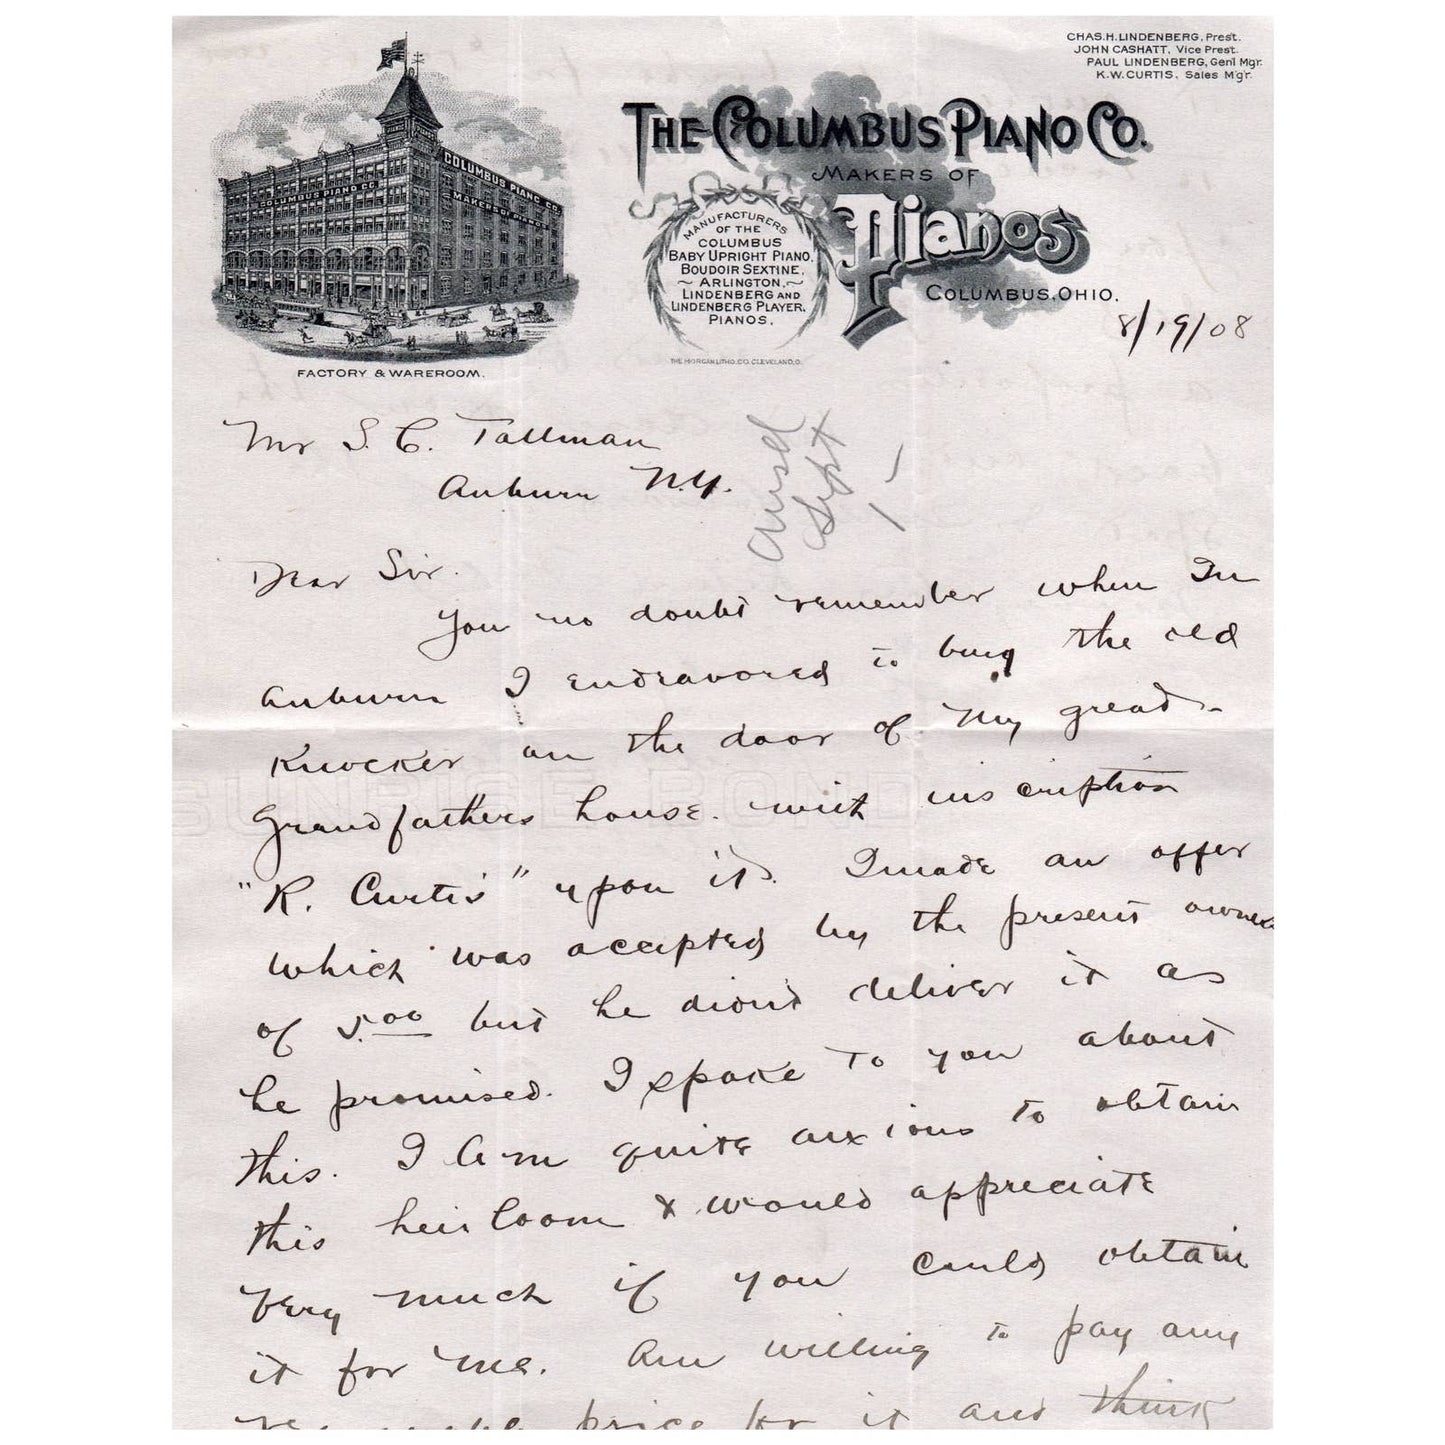 CHAS. H. LINDENBERG, Prest.
JOHN CASHATT, Vice Prest.
PAUL LINDENBERG, Gen'l Mgr.
K.W. CURTIS, Sales Mg'r.
THE COLUMBUS PIANO CO.
MAKERS OF
Pianos
COLUMBUS, OHIO.
MANUFACTURERS
OF THE
COLUMBUS
BABY UPRIGHT PIANO,
BOUDOIR SEXTINE,
~ ARLINGTON, ~
LINDENBERG AND
LINDENBERG PLAYER.
PIANOS.
THE MORGAN LITHO. CO. CLEVELAND, O.
COLUMBUS PIANO CO.
COLUMBUS PIANO CO.
MAKERS OF PIANOS
FACTORY & WAREROOM.
8/19/08
Mr S. C. Tallman
Auburn N.Y.
ansd
Sept
1 -
Dear Sir.
You no doubt remember when In
Auburn I endeavored to buy the old
Knocker on the door of My great-
Grandfathers house. with inscription
"R. Curtis" upon it. I made an offer
which was accepted by the present owner
of 5.00 but he didn't deliver it as
he promised. I spoke to you about
this. I am quite anxious to obtain
this heirloom & would appreciate
very much if you could obtain
it for me. Am willing to pay any
price for it and think
SUNRISE BOND